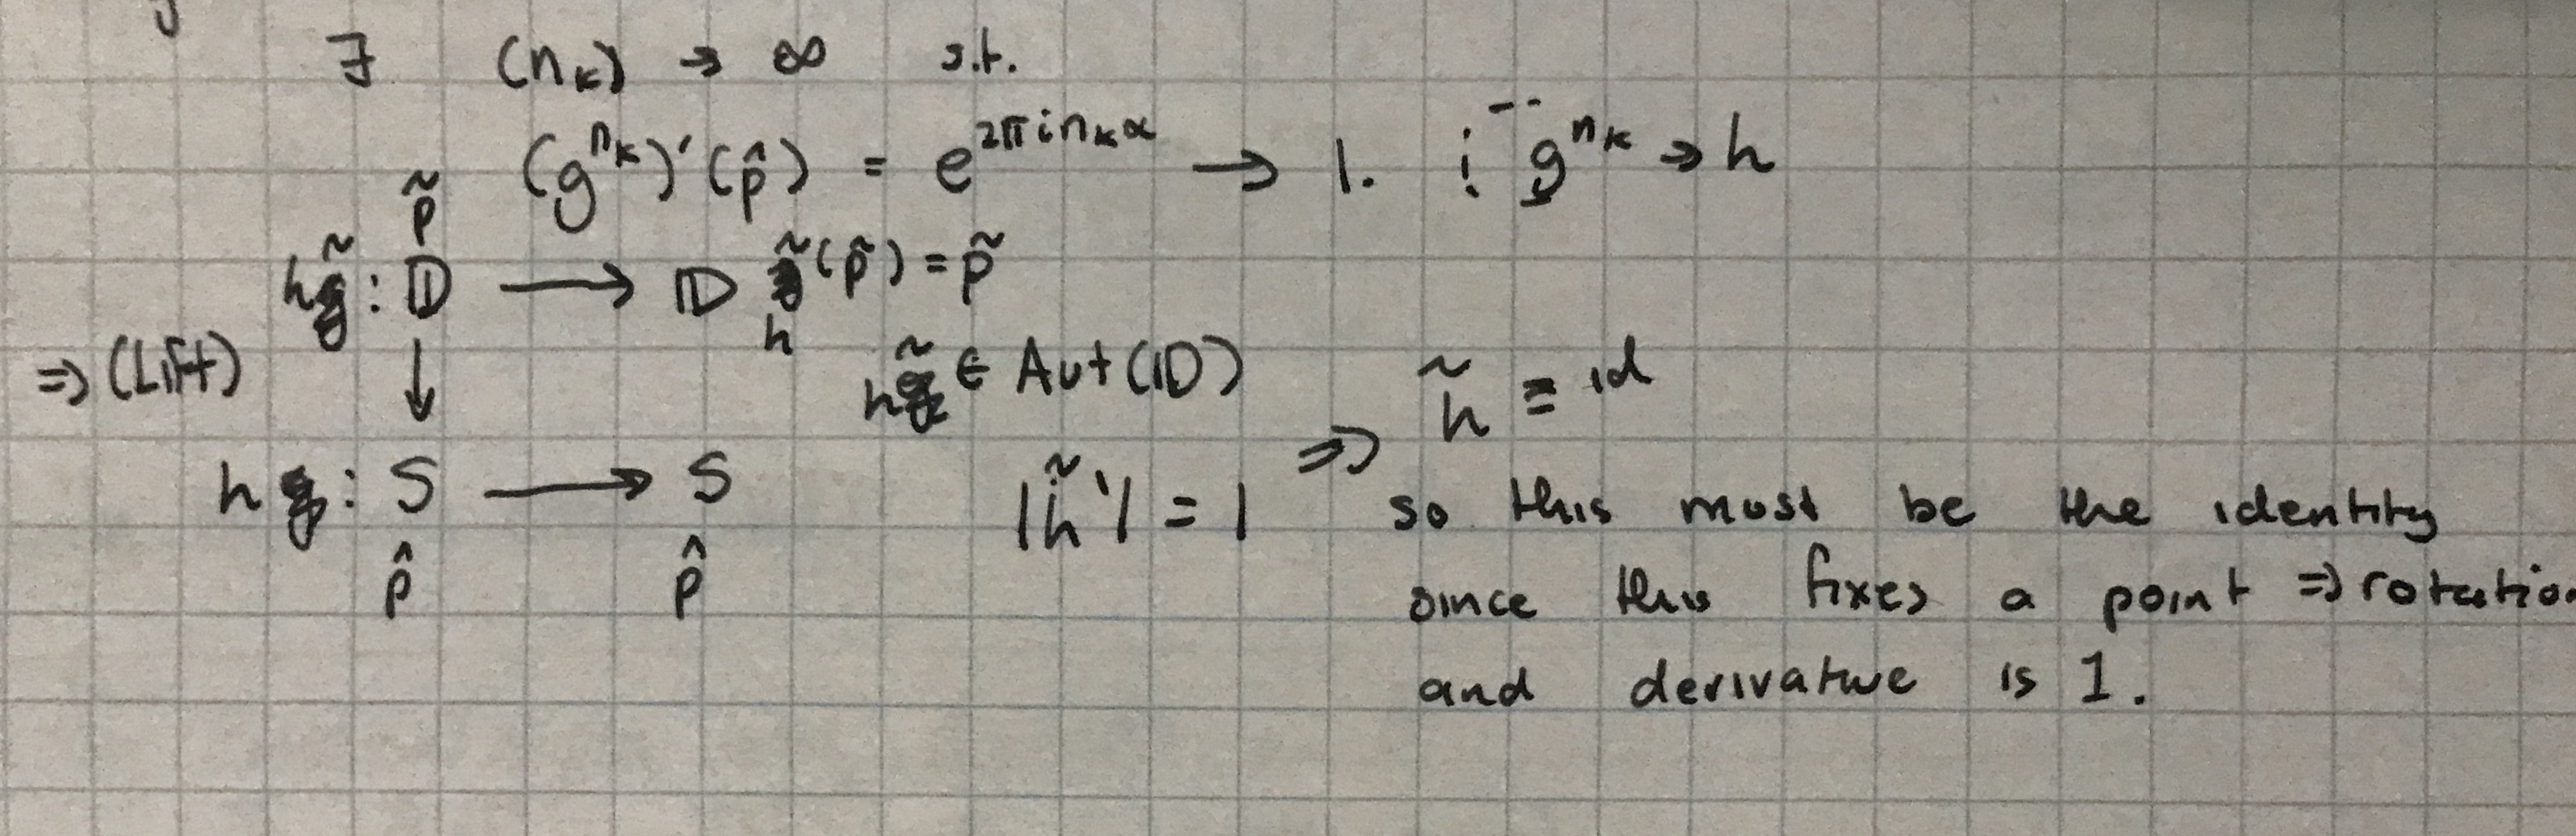 ∃ (nₖ) → ∞ s.t.
(g^{nₖ})'(p̂) = e^{2πinₖα} → 1. g^{nₖ} → h
p̃
h̃ : 𝔻 → 𝔻 h̃(p̃) = p̃
⇒ (Lift) ↓ h̃ ∈ Aut(𝔻) h̃ ≡ id
h : S → S |h̃'| = 1 ⇒ so this must be the identity
p̂ p̂ since this fixes a point ⇒ rotation
and derivative is 1.